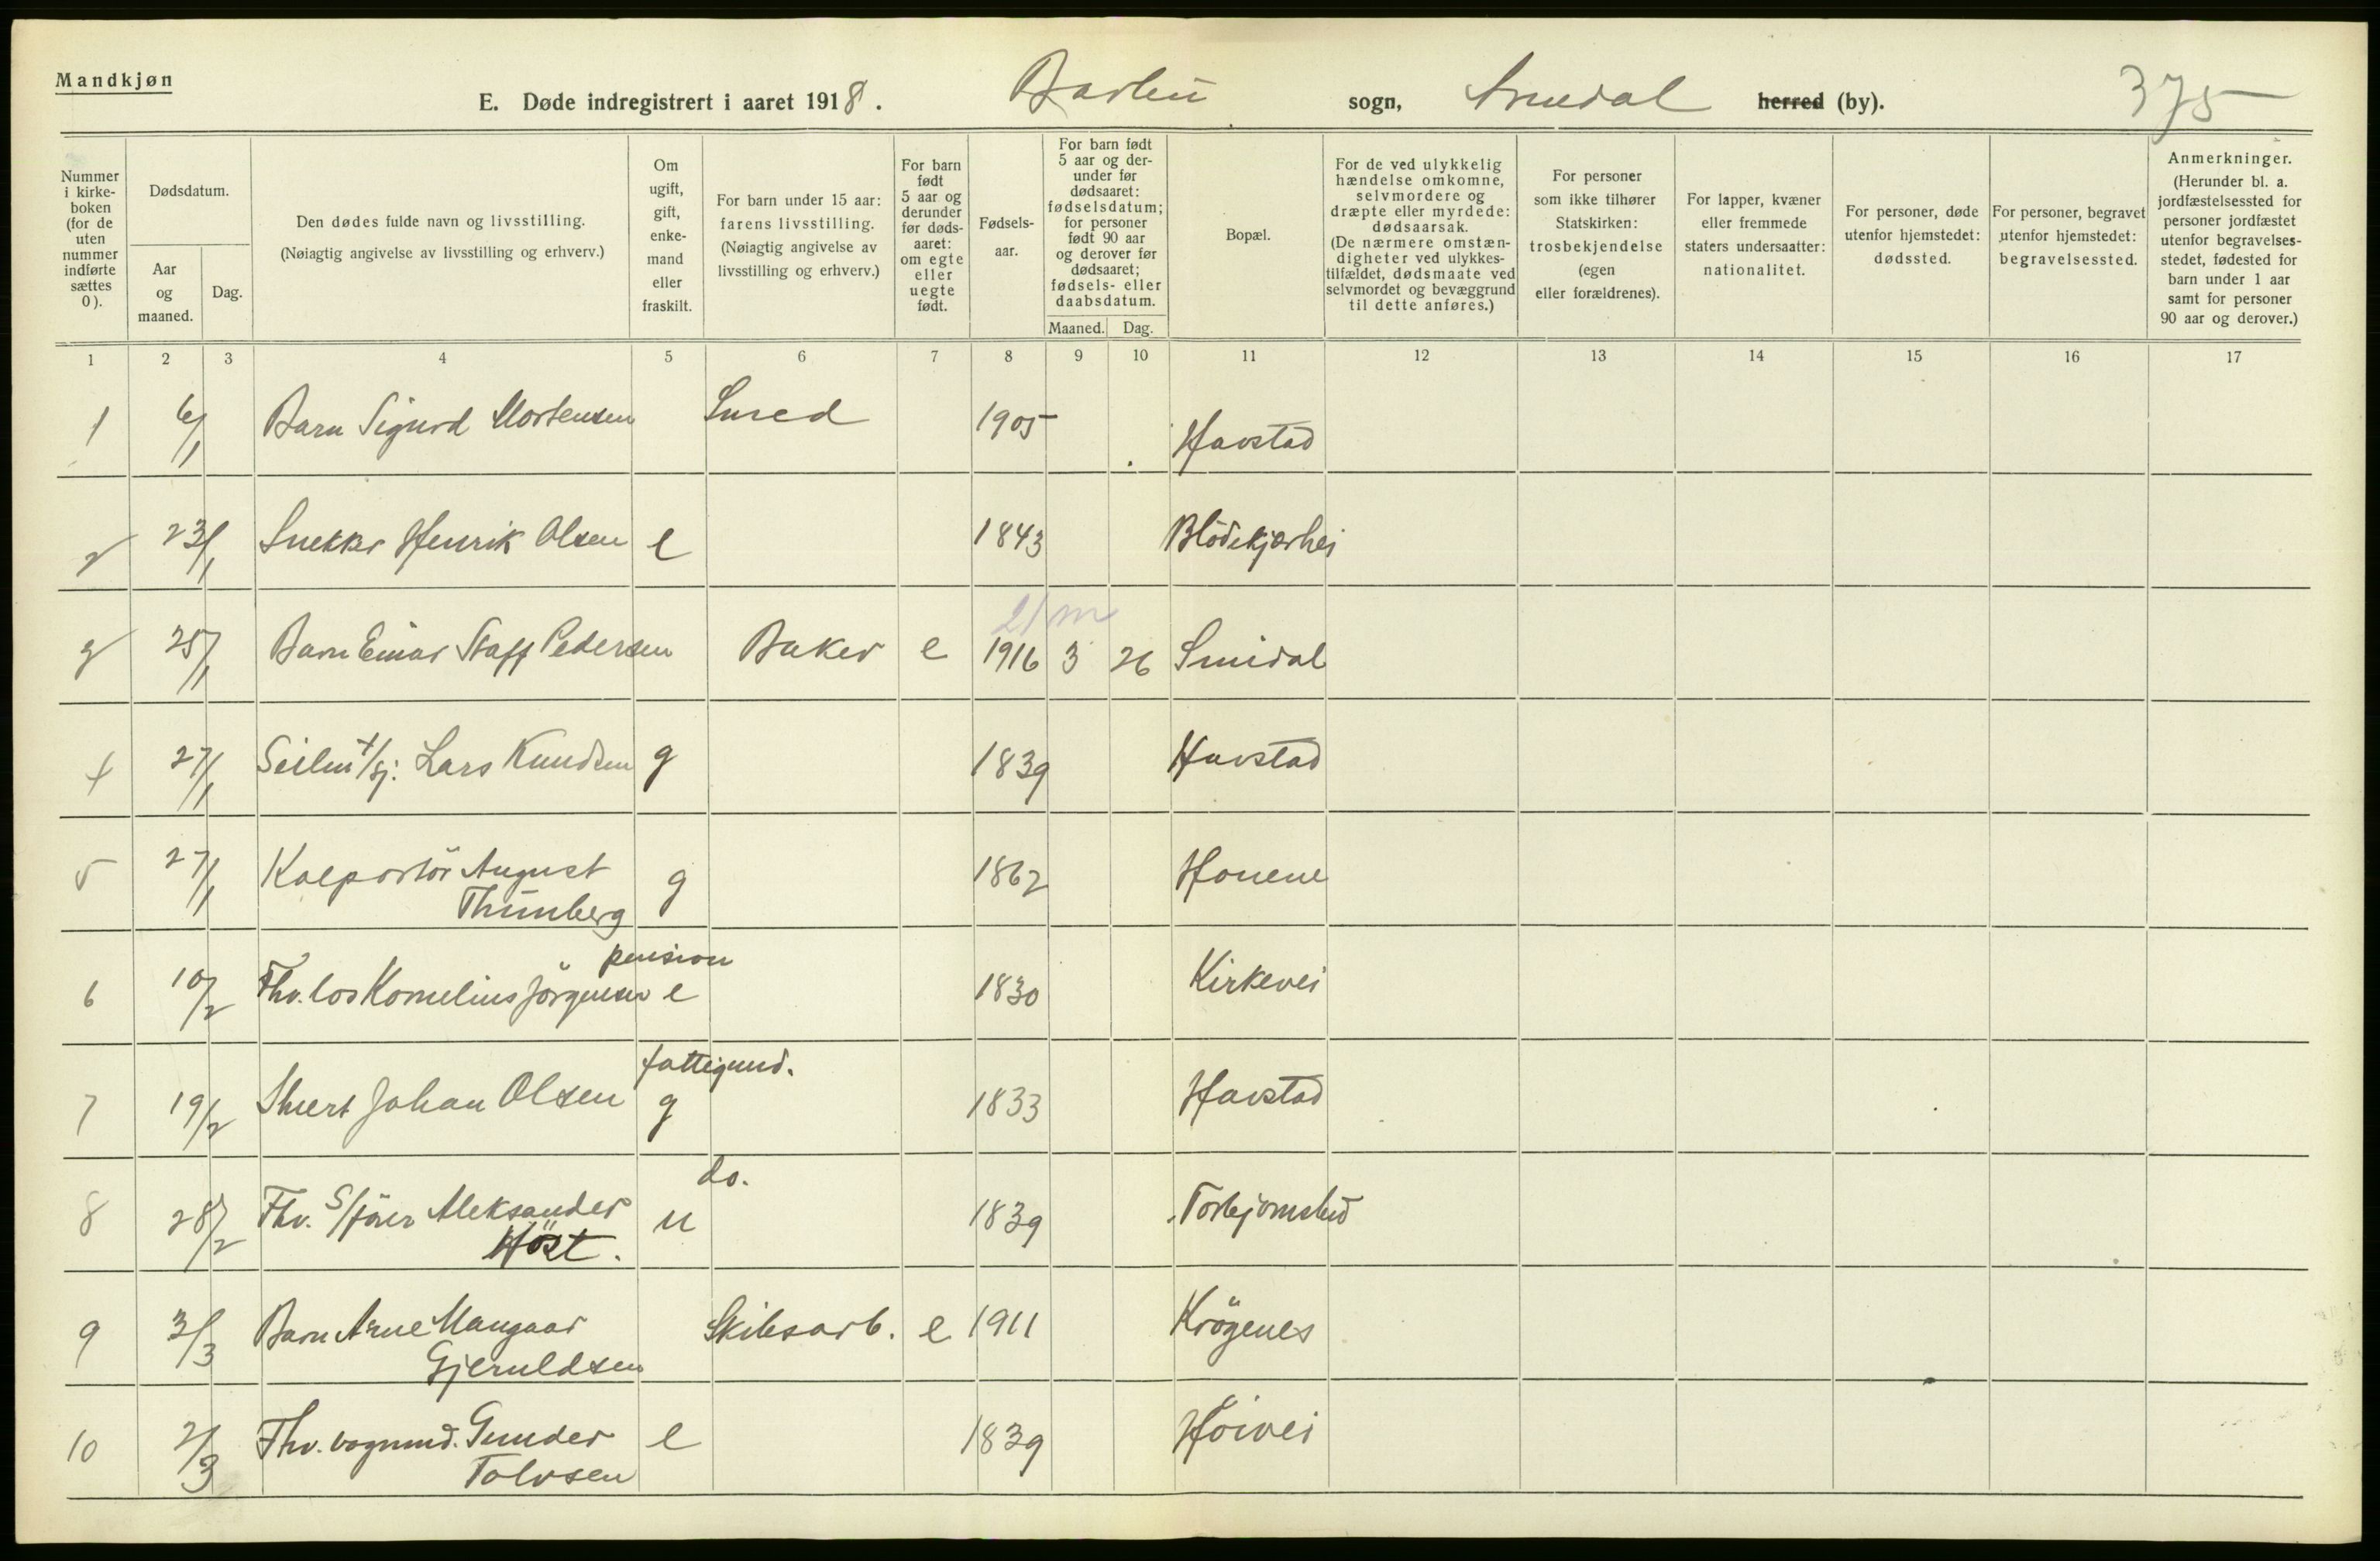 Mandkjøn
E. Døde indregistrert i aaret 1918. Barbu sogn, Arendal herred (by). 375
Nummer i kirkeboken (for de uten nummer indførte sættes 0).
Dødsdatum.
Aar og maaned.
Dag.
Den dødes fulde navn og livsstilling.
(Nøiagtig angivelse av livsstilling og erhverv.)
Om ugift, gift, enkemand eller fraskilt.
For barn under 15 aar: farens livsstilling.
(Nøiagtig angivelse av livsstilling og erhverv.)
For barn født 5 aar og derunder før dødsaaret: om egte eller uegte født.
Fødselsaar.
For barn født 5 aar og derunder før dødsaaret: fødselsdatum; for personer født 90 aar og derover før dødsaaret; fødsels- eller daabsdatum.
Maaned.
Dag.
Bopæl.
For de ved ulykkelig hændelse omkomne, selvmordere og dræpte eller myrdede: dødsaarsak.
(De nærmere omstændigheter ved ulykkestilfældet, dødsmaate ved selvmordet og bevæggrund til dette anføres.)
For personer som ikke tilhører Statskirken: trosbekjendelse (egen eller forældrenes).
For lapper, kvæner eller fremmede staters undersaatter: nationalitet.
For personer, døde utenfor hjemstedet: dødssted.
For personer, begravet utenfor hjemstedet: begravelsessted.
Anmerkninger.
(Herunder bl. a. jordfæstelsessted for personer jordfæstet utenfor begravelsesstedet, fødested for barn under 1 aar samt for personer 90 aar og derover.)
1 2 3 4 5 6 7 8 9 10 11 12 13 14 15 16 17
1 6/1 Barn Sigurd Mortensen Smed 1905 Havstad
2 23/1 Snekker Henrik Olsen e 1843 Blödekjærhei
21 m
3 25/1 Barn Einar Staff Pedersen Baker e 1916 3 26 Smidal
4 27/1 Seilm t/sj. Lars Knudsen g 1839 Havstad
5 27/1 Kolportör August Thunberg g 1862 Honene
pension
6 10/2 Fhv. los Kornelius Jörgensen e 1830 Kirkevei
fattigund.
7 19/2 Johan Olsen g 1833 Havstad
do.
8 28/2 Fhv. S/förer Aleksander Höst. u 1839 Torbjornsbu
9 3/3 Barn Arne Mangaar Gjeruldsen Skibsarb. e 1911 Krögenes
10 2/3 Fhv. vognmd. Gunder Tolvsen e 1839 Höivei